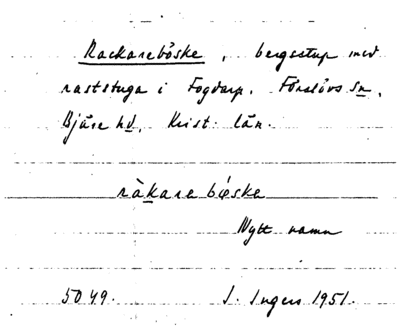 Rackareböske, bergsstup med
raststuga i Fogdarp. Förslövs sn,
Bjäre hd, Krist. län.
ràkarebǿske
Nytt namn
5049. I. Ingers 1951.